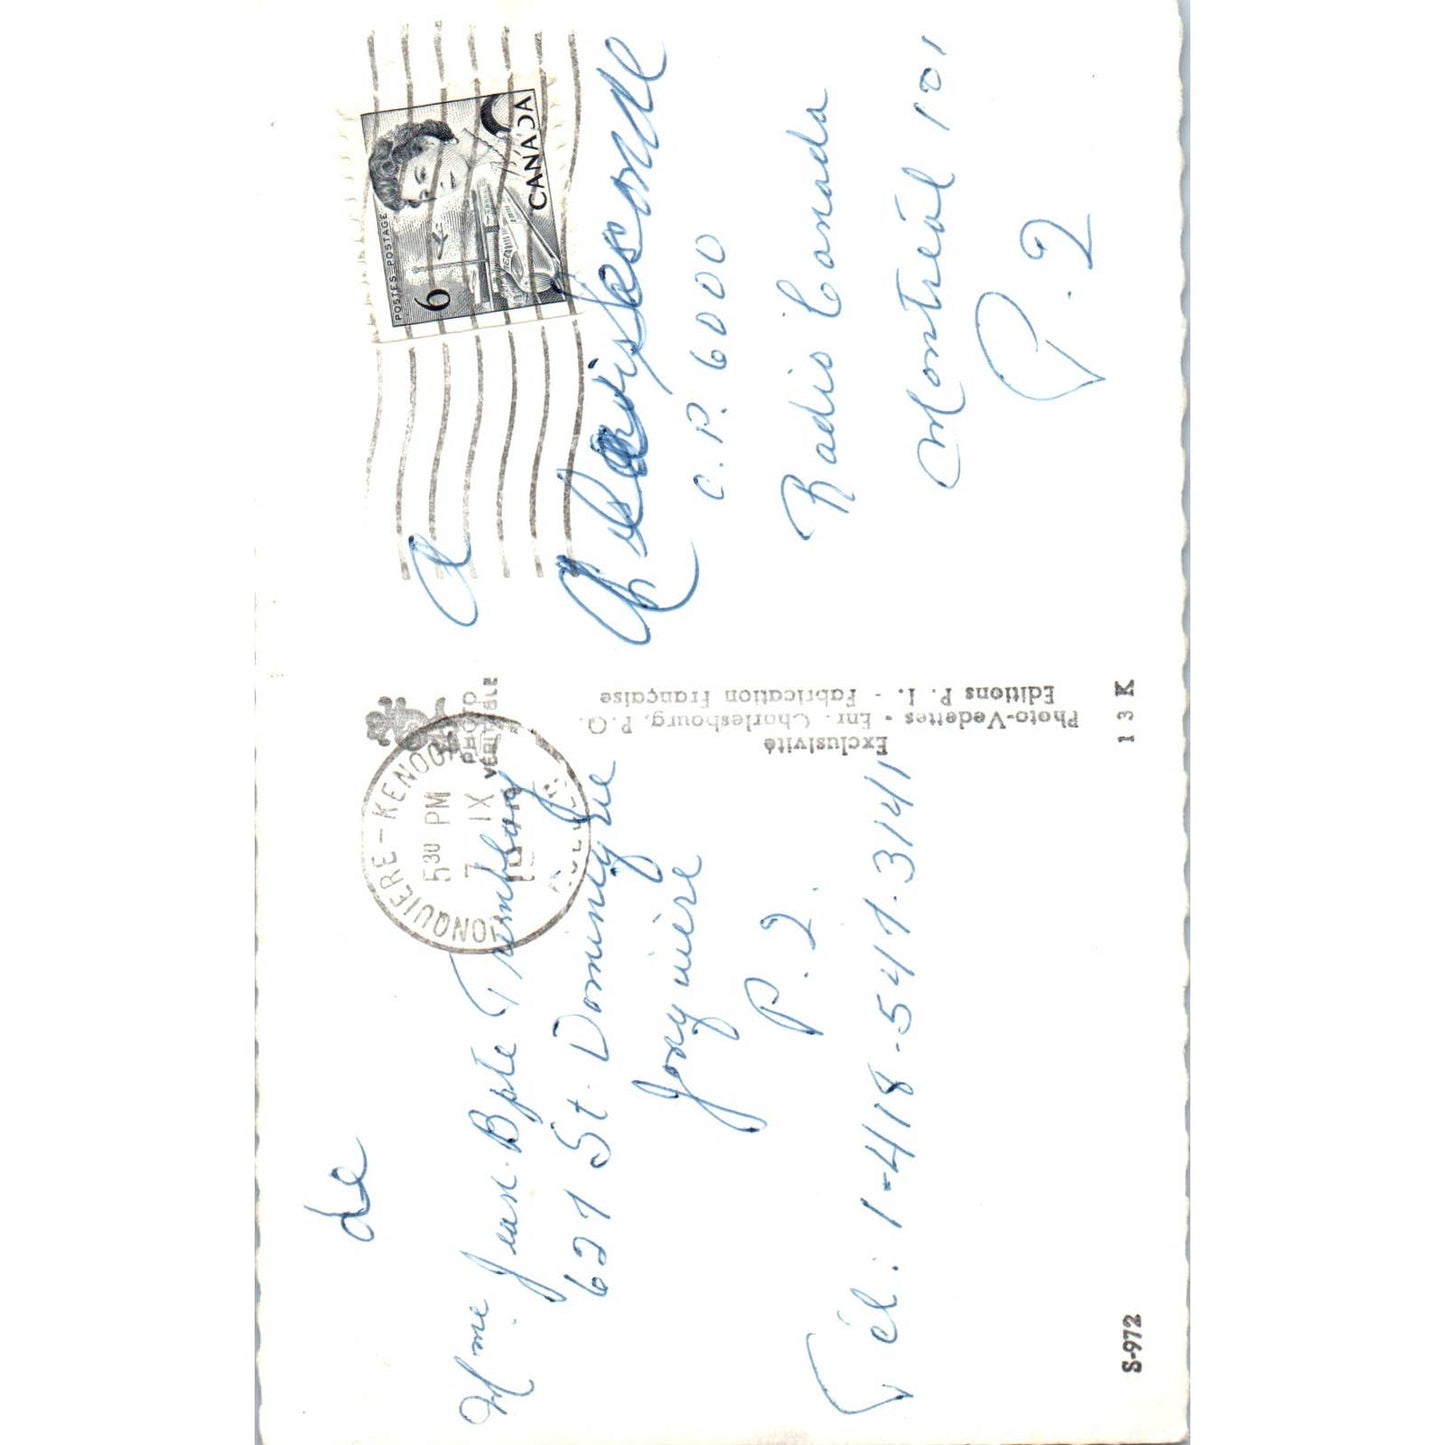 de
Mme Jean Bpte Tremblay
627 St. Dominique
Jonquière
P. 2.
Tél: 1-418-547-3141
S-972
JONQUIERE - KENOGAMI
5 30 PM
7 IX
PHOTO
VÉRITABLE
Exclusivité
Photo-Vedettes - Enr. Charlesbourg, P.Q.
Editions P. I. - Fabrication Française
13 K
POSTES-POSTAGE
6
CANADA
A
C. P. 6000
Radio Canada
Montréal 101
P. 2